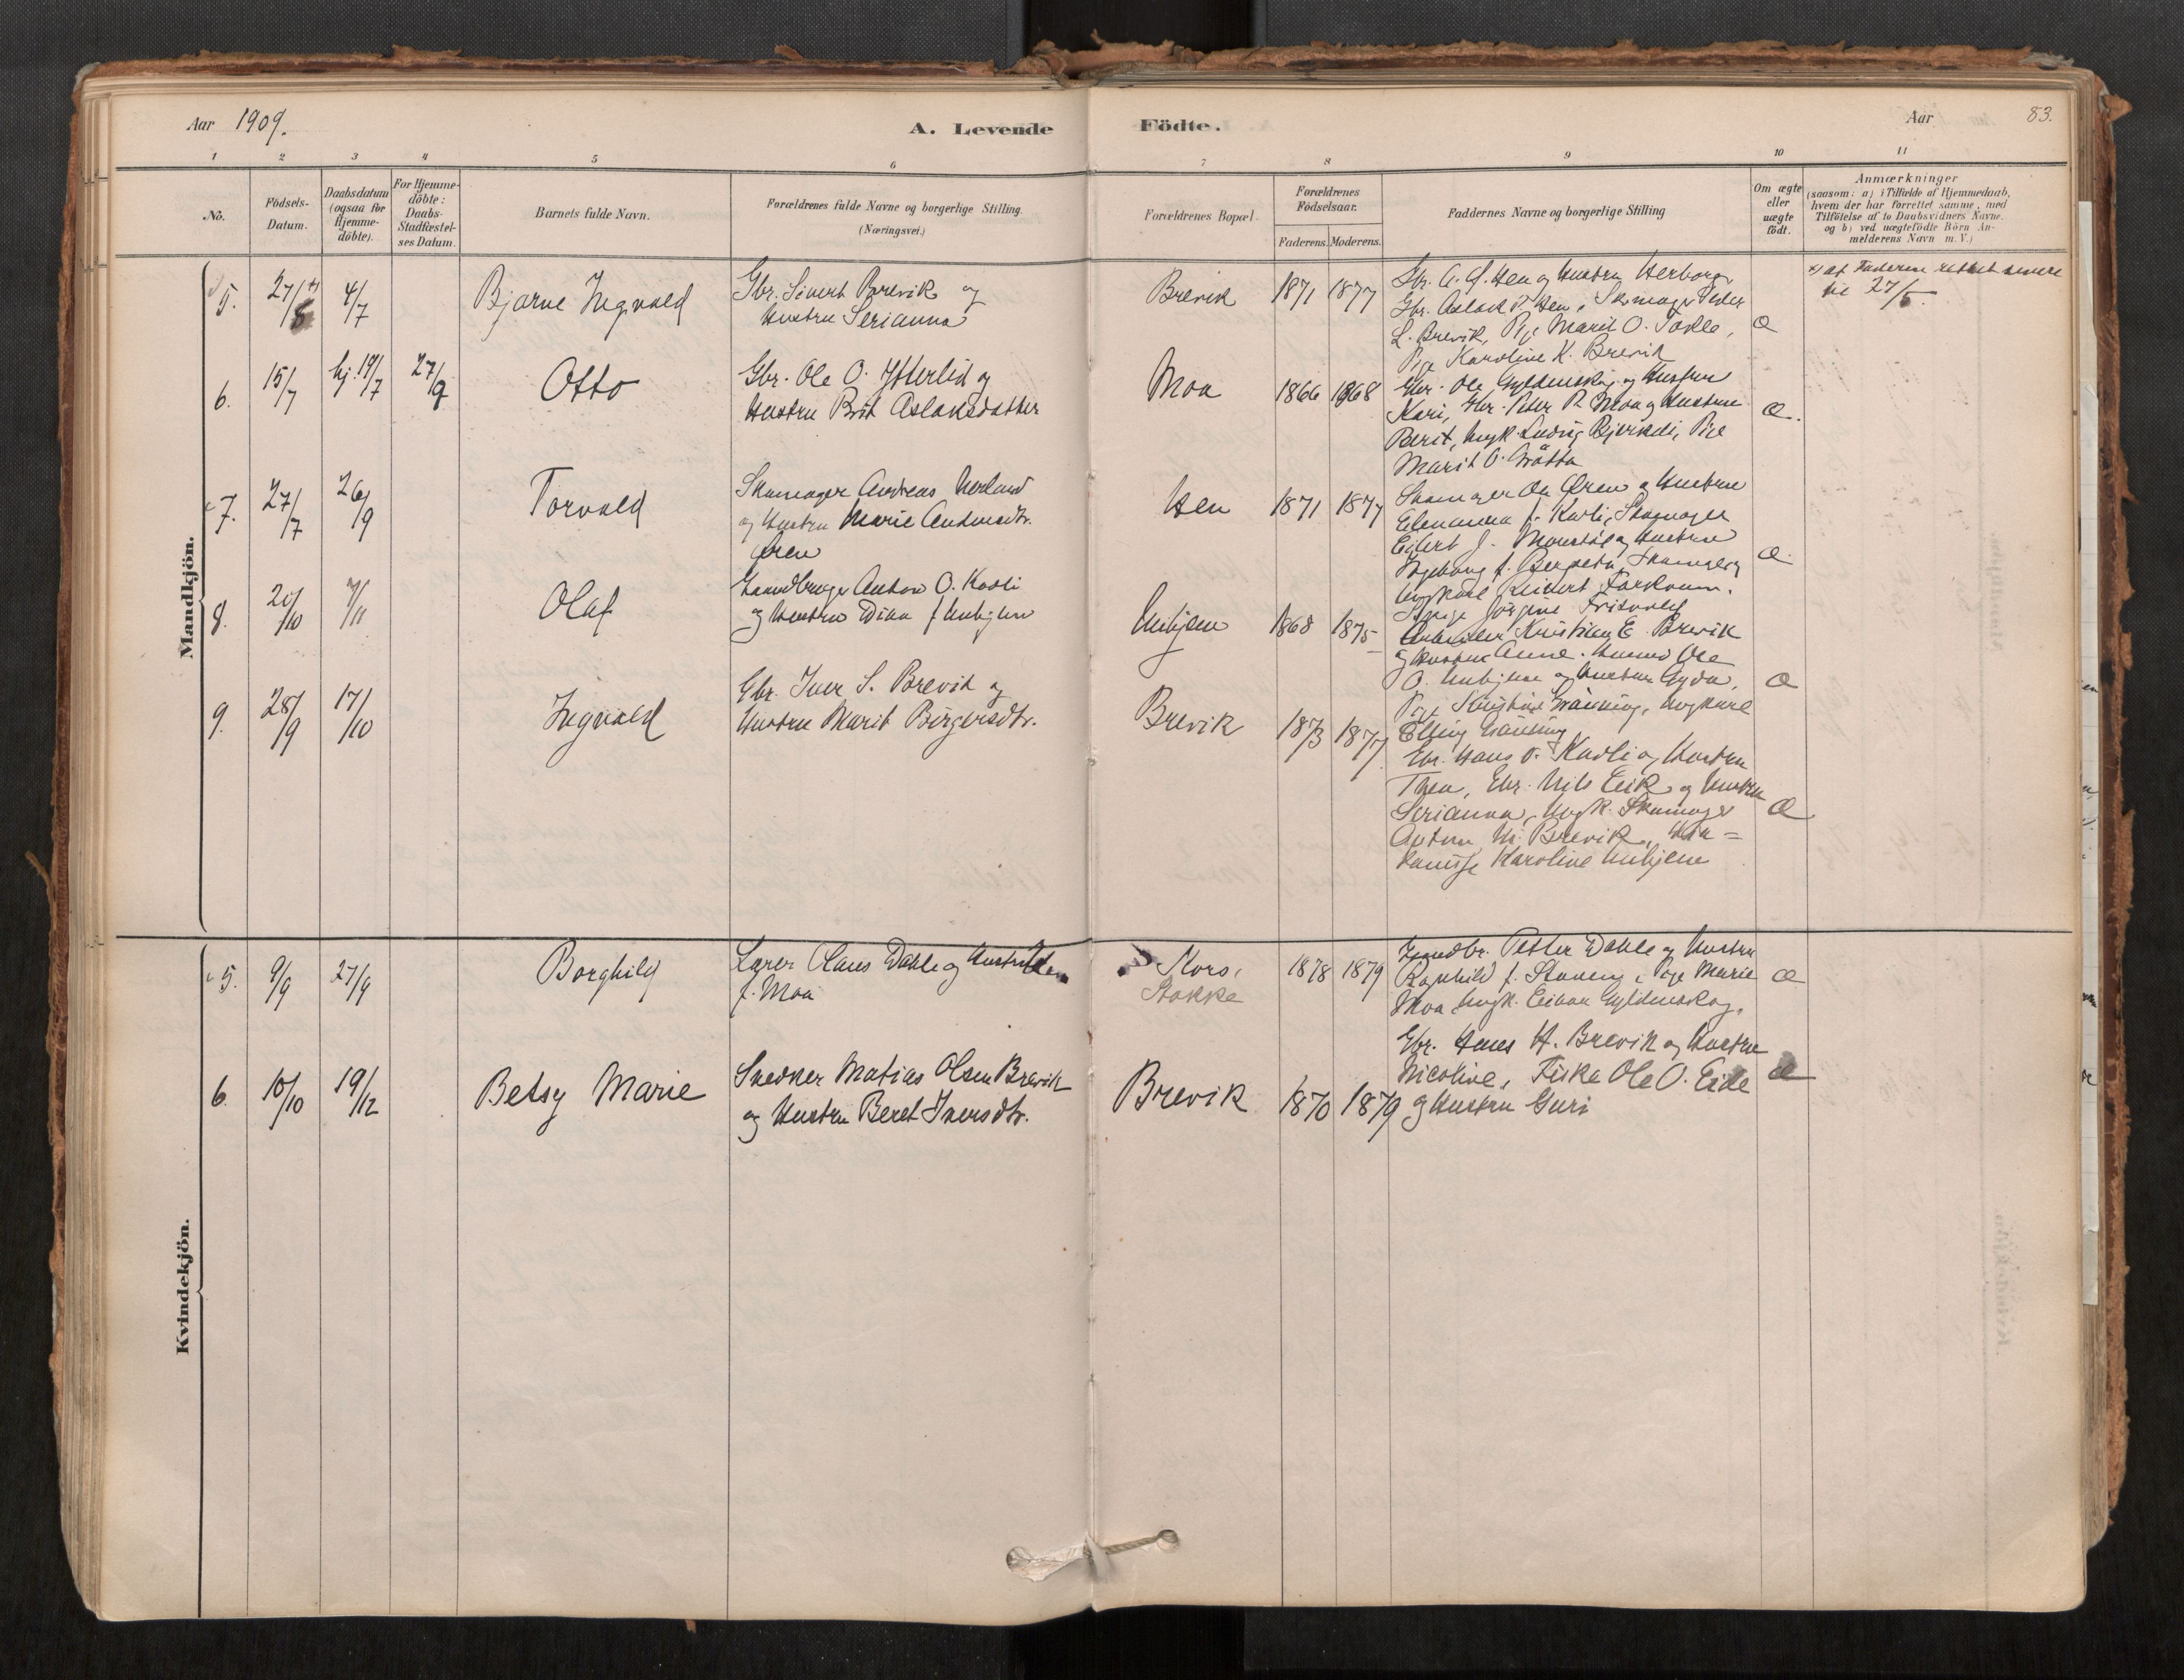 Aar 1909.
A. Levende Födte.
Aar
83.
1 2 3 4 5 6 7 8 9 10 11
No.
Födsels-
Datum.
Daabsdatum
(ogsaa for
Hjemme-
döbte).
For Hjemme-
döbte:
Daabs-
Stadfæstel-
ses Datum.
Barnets fulde Navn.
Forældrenes fulde Navne og borgerlige Stilling.
(Næringsvei.)
Forældrenes Bopæl.
Forældrenes
Födselsaar.
Faderens. Moderens.
Faddernes Navne og borgerlige Stilling
Om ægte
eller
uægte
födt.
Anmærkninger
(saasom: a) i Tilfælde af Hjemmedaab,
hvem der har forrettet samme, med
Tilföielse af to Daabsvidners Navne.
og b) ved uægtefödte Börn An-
melderens Navn m. V.)
Mandkjön.
5. 27/8 +) 4/7
Bjarne Ingvald
Gbr. Sivert Brevik og
Hustru Serianna
Brevik 1871 1877
Gbr. A. J. Hen og Hustru Herborg
Gbr. Aslak P. Hen, Skomager Peder
L. Brevik, Pige Marit O. Tokle,
Pige Karoline K. Brevik
Æ
+) af Faderen rettet senere
til 27/5.
6. 15/7 hj. 19/7 27/9
Otto
Gbr. Ole O. Ytterlid og
Hustru Brit Aslaksdatter
Moa 1866 1868
Gbr. Ole Gyldenskog og Hustru
Kari, Gbr. Peter P. Moa og Hustru
Berit, Ungk. Ludvig Bjerkeli, Pige
Marit O.
Æ.
7. 27/7 26/9
Torvald
Skomager Andreas
og Hustru Marie
Øren
Hen 1871 1877
Skomager Ole Øren og Hustru
Elenanna f. Kavli, Skomager
Eilert J. og Hustru
Ingeborg f.
Ungkarl
Pige Jørgine Frisvold
Æ
8. 20/10 7/11
Olaf
Landbruger Anton O. Kavli
og Hustru Dina f. Unhjem
Unhjem 1868 1875
Arbeider Kristian E. Brevik
og Hustru Anne. Ole
O. Unhjem og Hustru Gyda,
Pige Kristine Grønning, Ungkarl
Elling Grønning
Æ
9. 28/9 17/10
Ingvald
Gbr. Iver S. Brevik og
Hustru Marit Birgersdtr.
Brevik 1873 1877
Gbr. Hans O. Kavli og Hustru
Thea, Gbr. Nils Eik og Hustru
Serianna, Ungk. Skomager
Anton M. Brevik,
Karoline Unhjem
Æ
Kvindekjön.
5. 9/9 27/9
Borghild
Lærer Claus Dahle og Hustru
f. Moa
Kors,
Stokke
1878 1879
Landbr. Petter Dahle og Hustru
Ragnhild f. Pige Marie
Moa Ungk. Einar Gyldenskog.
Æ
6. 10/10 19/12
Betsy Marie
Snedker Matias Olsen Brevik
og Hustru Beret Iversdtr.
Brevik 1870 1879
Gbr. Hans H. Brevik og Hustru
Nicoline, Fisker Ole O. Eide
og Hustru Guri
Æ